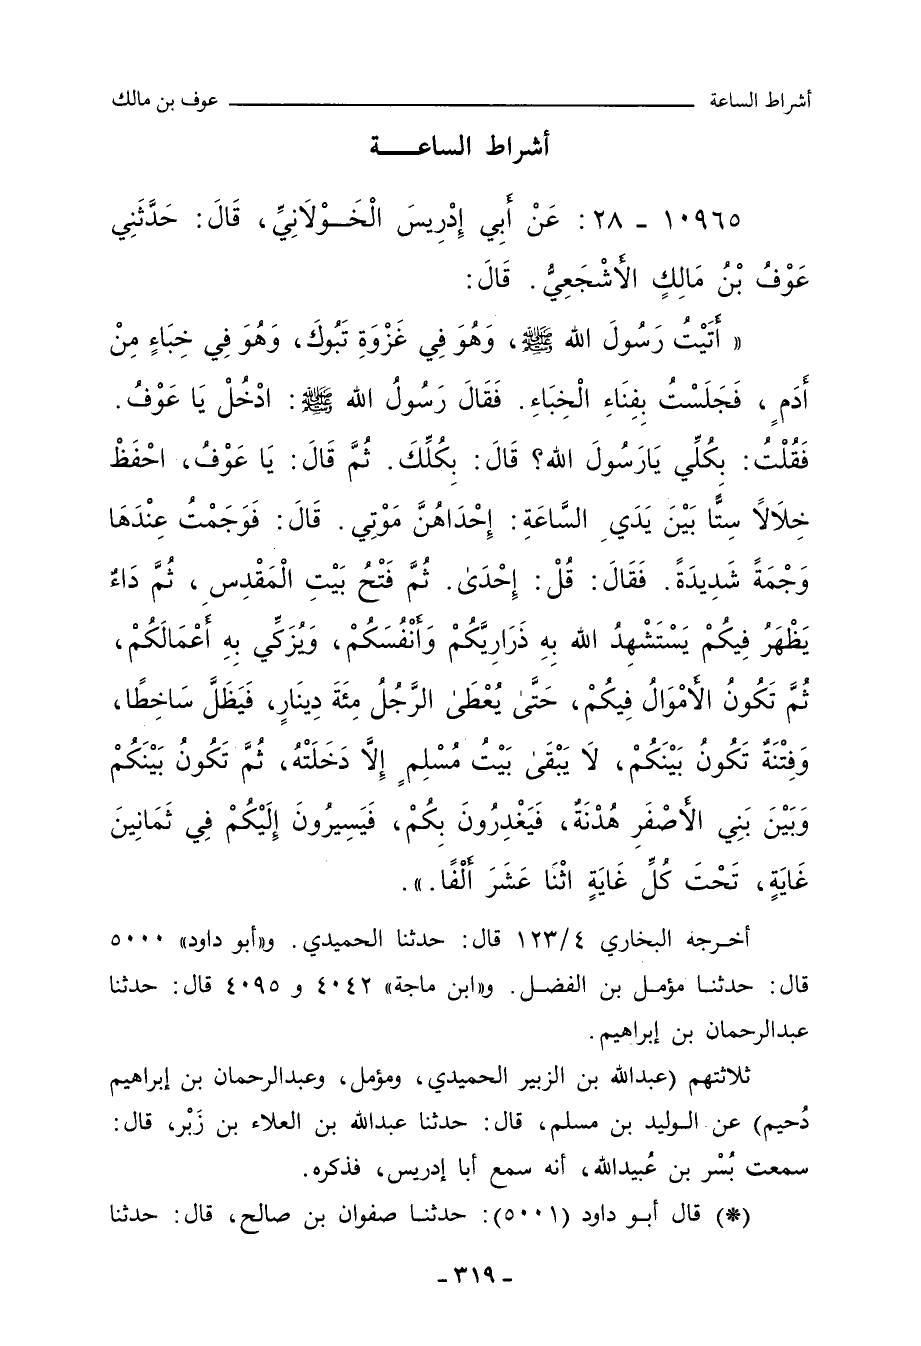 أشراط الساعة ــــــــــــــــــــ عوف بن مالك
أشراط الساعــــة
١٠٩٦٥ - ٢٨ : عَنْ أَبِي إِدْرِيسَ الْخَـوْلَانِيِّ، قَالَ: حَدَّثَنِي
عَوْفُ بْنُ مَالِكٍ الأَشْجَعِيُّ. قَالَ:
« أَتَيْتُ رَسُولَ الله ﷺ، وَهُوَ فِي غَزْوَةِ تَبُوكَ، وَهُوَ فِي خِبَاءٍ مِنْ
أَدَمٍ، فَجَلَسْتُ بِفِنَاءِ الْخِبَاءِ. فَقَالَ رَسُولُ الله ﷺ: ادْخُلْ يَا عَوْفُ.
فَقُلْتُ: بِكُلِّي يَارَسُولَ الله؟ قَالَ: بِكُلِّكَ. ثُمَّ قَالَ: يَا عَوْفُ، احْفَظْ
خِلَالاً سِتًّا بَيْنَ يَدَيِ السَّاعَةِ: إِحْدَاهُنَّ مَوْتِي. قَالَ: فَوَجَمْتُ عِنْدَهَا
وَجْمَةً شَدِيدَةً. فَقَالَ: قُلْ: إِحْدَىٰ. ثُمَّ فَتْحُ بَيْتِ الْمَقْدِسِ، ثُمَّ دَاءٌ
يَظْهَرُ فِيكُمْ يَسْتَشْهِدُ الله بِهِ ذَرَارِيَّكُمْ وَأَنْفُسَكُمْ، وَيُزَكِّي بِهِ أَعْمَالَكُمْ،
ثُمَّ تَكُونُ الأَمْوَالُ فِيكُمْ، حَتَّىٰ يُعْطَىٰ الرَّجُلُ مِئَةَ دِينَارٍ، فَيَظَلَّ سَاخِطًا،
وَفِتْنَةٌ تَكُونُ بَيْنَكُمْ، لَا يَبْقَىٰ بَيْتُ مُسْلِمٍ إِلَّا دَخَلَتْهُ، ثُمَّ تَكُونُ بَيْنَكُمْ
وَبَيْنَ بَنِي الأَصْفَرِ هُدْنَةٌ، فَيَغْدِرُونَ بِكُمْ، فَيَسِيرُونَ إِلَيْكُمْ فِي ثَمَانِينَ
غَايَةٍ، تَحْتَ كُلِّ غَايَةٍ اثْنَا عَشَرَ أَلْفًا. ».
أخـرجه البخاري ٤/ ١٢٣ قال: حدثنا الحميدي. و«أبو داود» ٥٠٠٠
قال: حدثنـا مؤمـل بن الفضـل. و«ابن ماجة» ٤٠٤٢ و ٤٠٩٥ قال: حدثنا
عبدالرحمان بن إبراهيم.
ثلاثتهم (عبدالله بن الزبير الحميدي، ومؤمل، وعبدالرحمان بن إبراهيم
دُحيم) عن الـوليد بن مسلم، قال: حدثنا عبدالله بن العلاء بن زَبْر، قال:
سمعت بُسْر بن عُبيدالله، أنه سمع أبا إدريس، فذكره.
(*) قال أبـو داود (٥٠٠١): حدثنـا صفوان بن صالح، قال: حدثنا
- ٣١٩ -